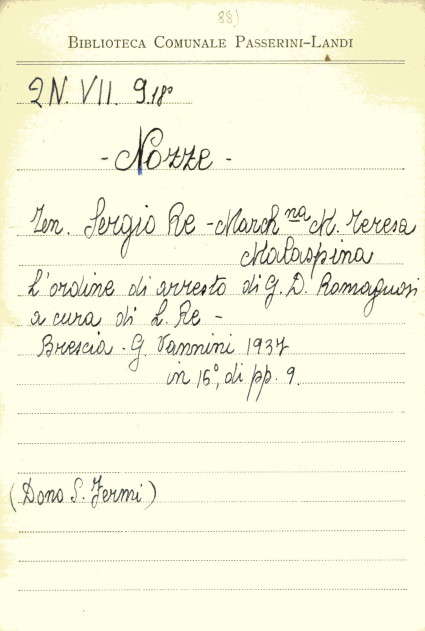 88)
BIBLIOTECA COMUNALE PASSERINI-LANDI
2N. VII. 9.18°
- Nozze -
Ten. Sergio Re - March.na M. Teresa
Malaspina
L'ordine di arresto di G. D. Romagnosi
a cura di L. Re -
Brescia - G. Vannini 1937
in 16°, di pp. 9.
(Dono S. Fermi)